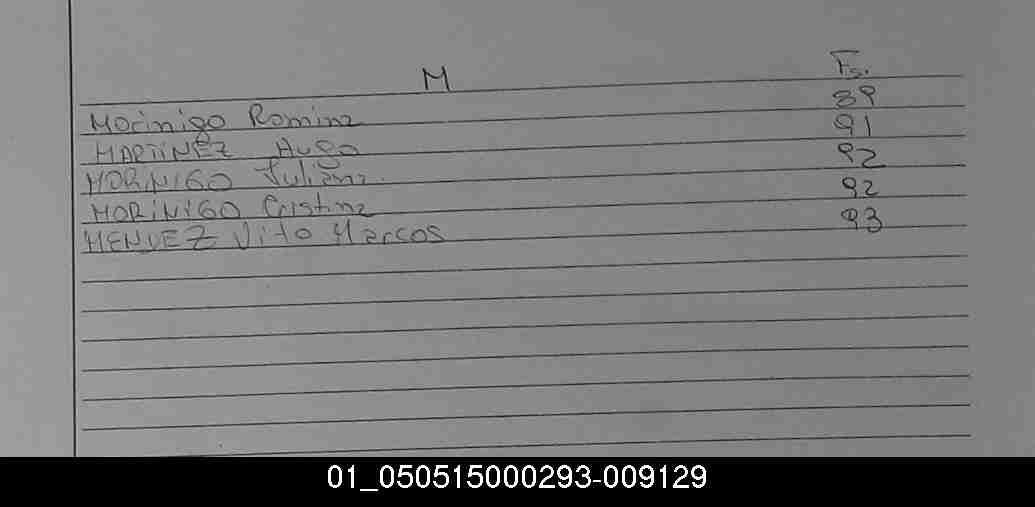 M Fs.
Morinigo Romina 89
MARTINEZ Hugo 91
MORINIGO Juliana. 92
MORINIGO Cristina 92
MENDEZ Vito Marcos 93
01_050515000293-009129